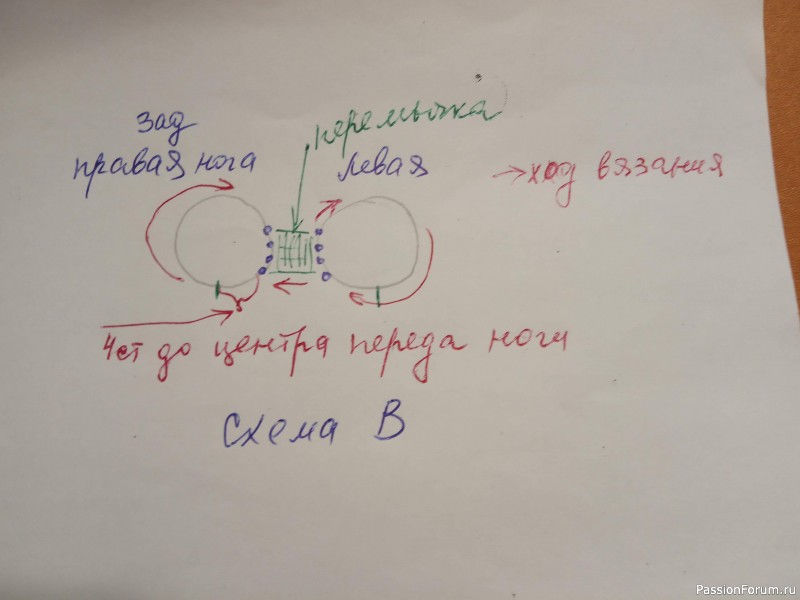 зад
правая нога
перемычка
левая
ход вязания
4ст до центра переда ноги
Схема В
PassionForum.ru